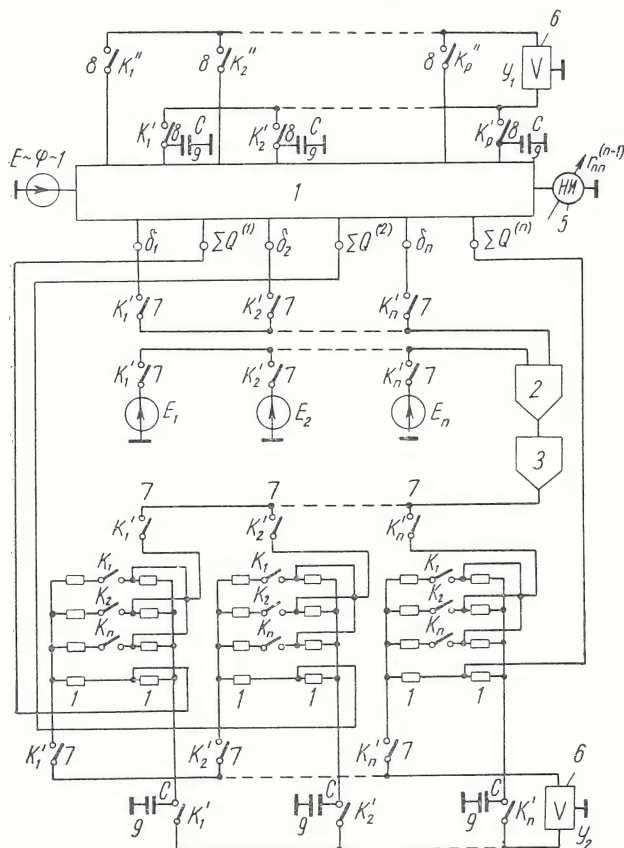 6
8 K₁″ 8 K₂″ 8 Kₚ″ V
У₁
K₁′ 8 C 9 K₂′ 8 C 9 Kₚ′ 8 C 9
E~φ~1 1 НИ rₙₙ⁽ⁿ⁻¹⁾
5
δ₁ ΣQ⁽¹⁾ δ₂ ΣQ⁽²⁾ δₙ ΣQ⁽ⁿ⁾
K₁′ 7 K₂′ 7 Kₙ′ 7
K₁′ 7 K₂′ 7 Kₙ′ 7 2
E₁ E₂ Eₙ
3
7 7 7
K₁′ K₂′ Kₙ′
K₁ K₁ K₁
K₂ K₂ K₂
Kₙ Kₙ Kₙ
1 1 1 1 1 1
K₁′ 7 K₂′ 7 Kₙ′ 7
6
C C C V
9 K₁′ 9 K₂′ 9 Kₙ′ У₂